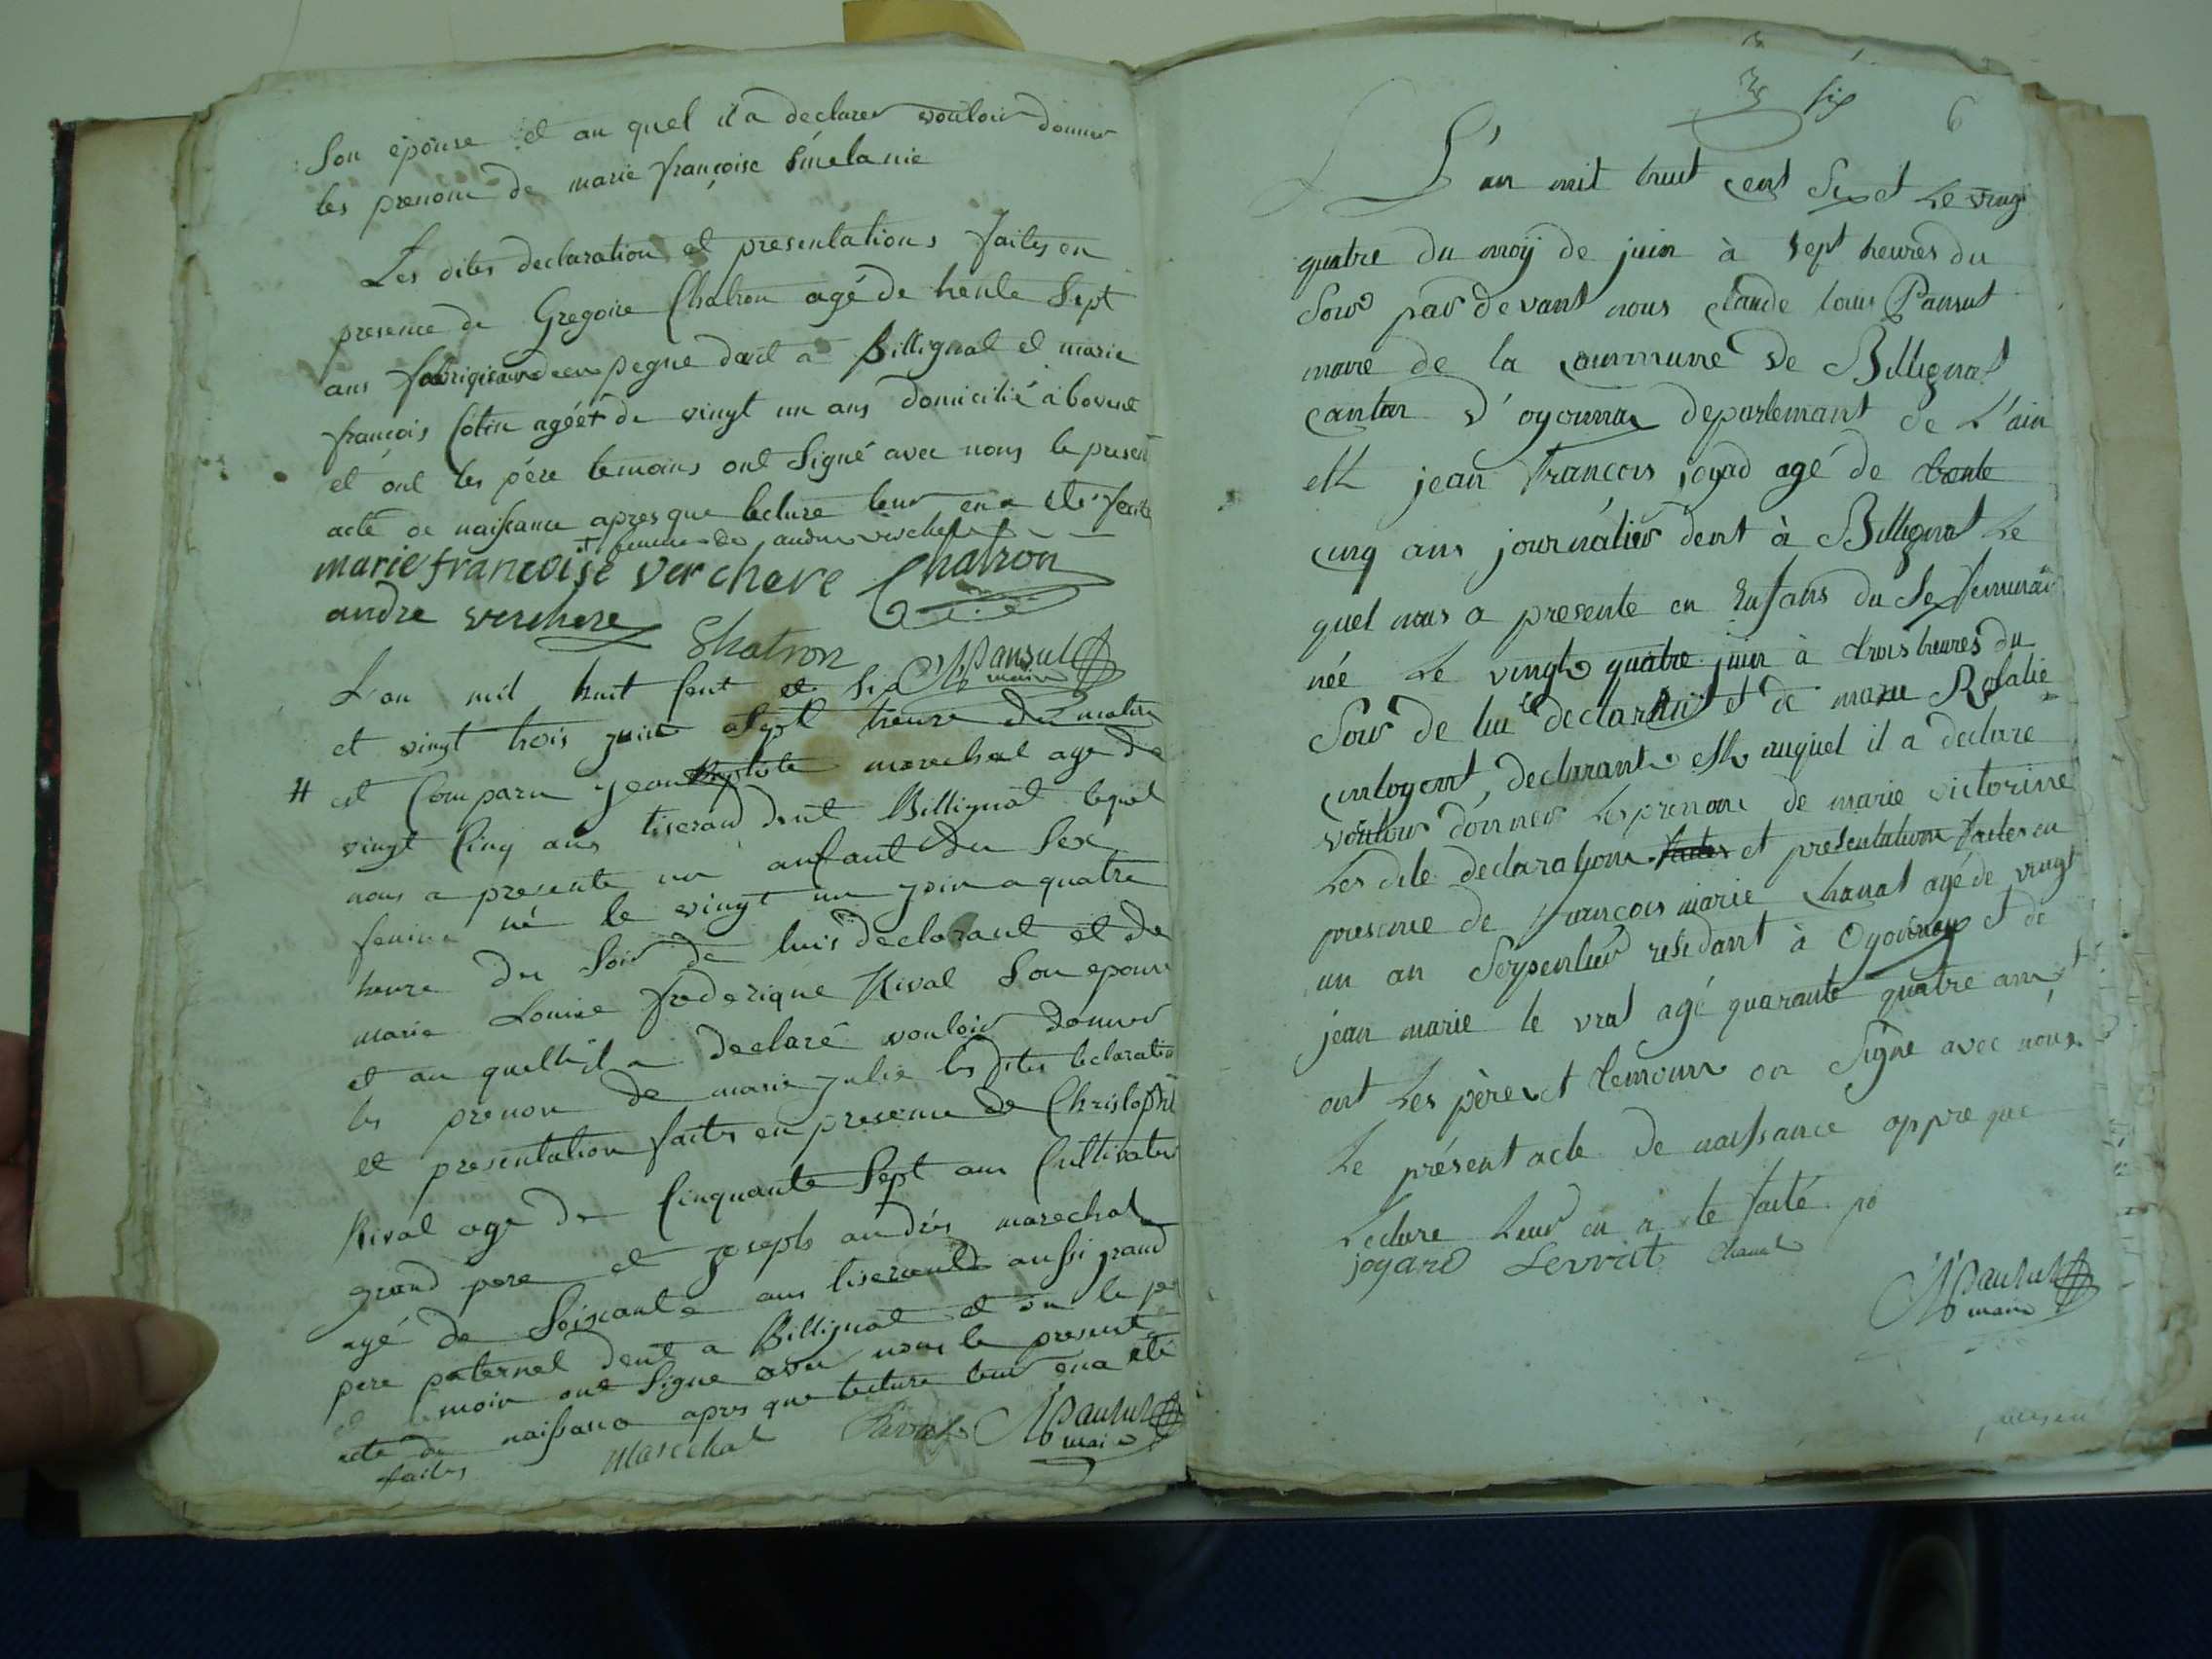 Son epouse et au quel il a declarer vouloir donner
les prenom de marie françoise Emelanie
Les dites declaration et presentations faites en
presence de Gregoire Chatron agé de trente Sept
ans pegne dent a Billignat et marie
françois Cotin agéét de vingt un ans domicilié à bovent
et ont les pére temoins ont Signé avec nous le present
acte de naissance apres que lecture leur en a eté faite
+ femme de andre verchere
marie françoise verchere Chatron
andre verchere
Chatron Pansut maire
L'an mil huit Cent et Six
et vingt trois juin a Sept heure du matin
# est Comparu jean Baptiste marechal age de
vingt Cinq ans tiserand dent Billignat lequel
nous a presente un anfant du Sex
femini né le vingt un juin a quatre
heure du Soir de luis declarant et de
marie Louise frederique Rival Son epouse
et au quelle il a declaré vouloir donner
les prenon de marie julie les dites declaration
et presentation faites en presence de Christophe
Rival age de Cinquante Sept ans Cultivateur
grand pere et joseph andrés marechal
agé de Soixante ans tiserand aussi grand
pere paternel dent a Billignat et on le per
et temoin ont Signe avec nous le present
acte de naissance apres que lecture leur en a eté
faites marechal Rival Pansut maire
six 6
L'an mil huit cent Six et Le vingt
quatre du moij de juin à sept heures du
Soir par devant nous claude louis Pansut
maire de la commune de Billignat
canton d'oyonnax departemant de L'ain
est jean françois joyard agé de trente
cinq ans journalier dent à Billignat Le
quel nous a presente en Enfans du Sex femini
née Le vingt quatre juin à trois heures du
Soir de lui declarant et de marie Rosalie
declarant auquel il a declare
vouloir donner Les prenom de marie victorine
Les dite declaration faites et presentation faites en
presence de françois marie chanal agé de vingt
un an Serpentier residant à Oyonnax et de
jean marie le vrat agé quarante quatre ans
ont Les père et temoins on Signe avec nous
Le présent acte de naissance appre que
Lecture Leur en a ete faité
joyard Levrat Chanal
Pansut maire